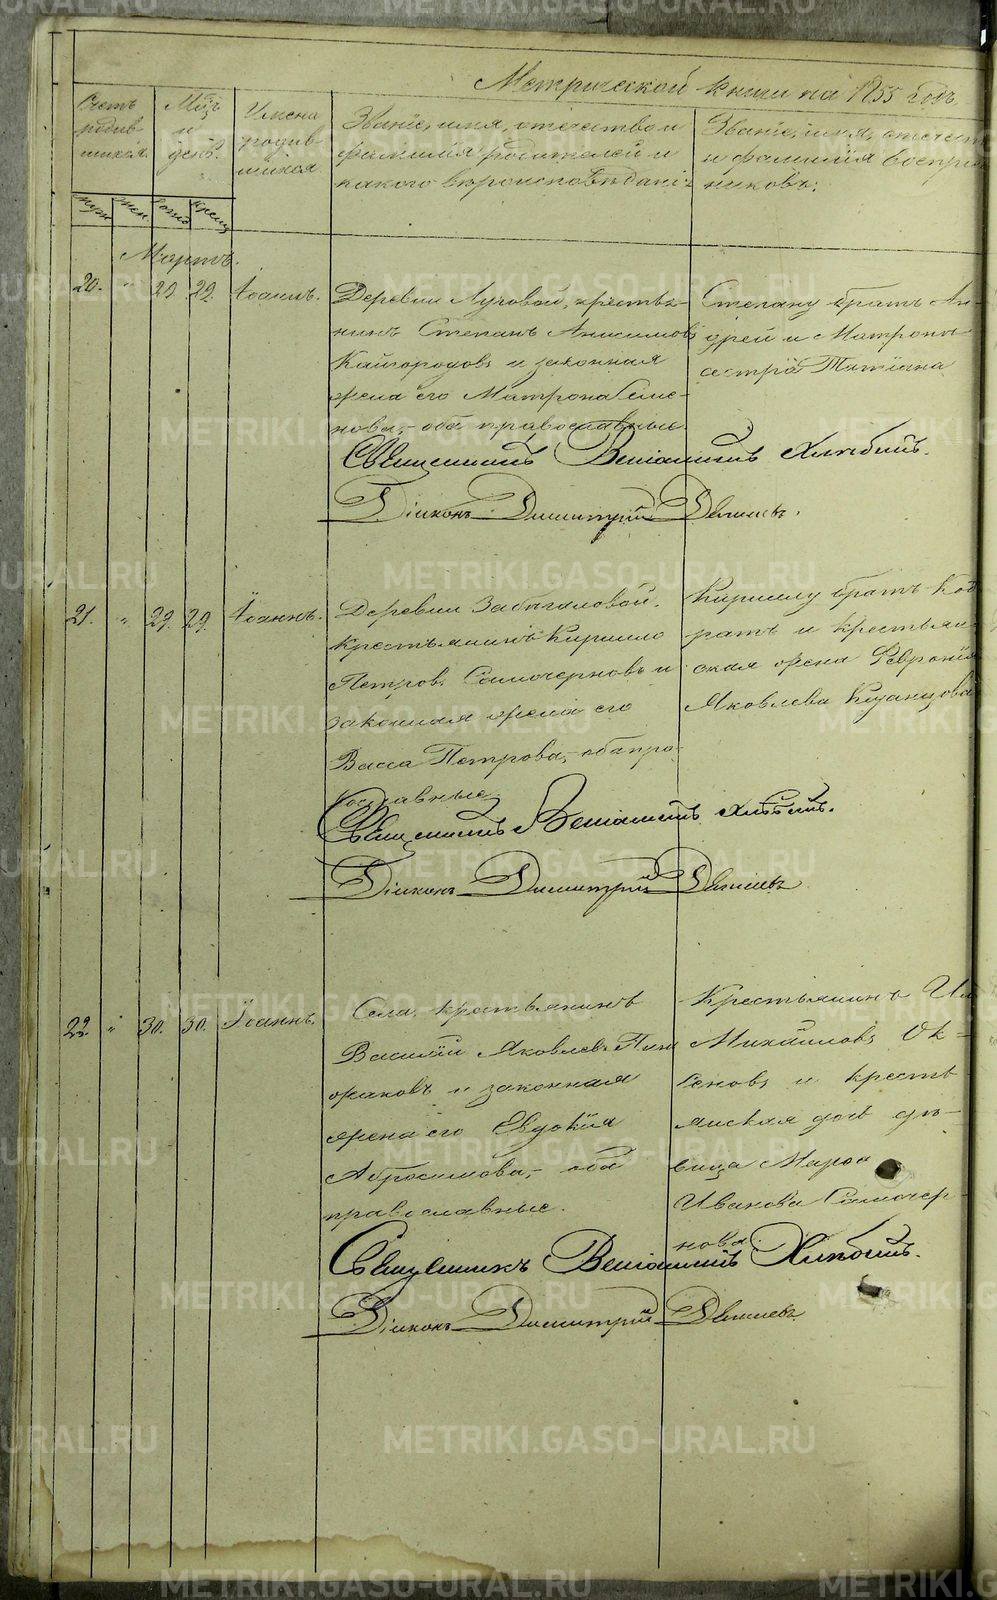 Метрической книги на 1855 годъ
Счетъ родив-шихся.
Мцъ и день.
Имена родив-шихся
Званіе, имя, отечество и
фамилія родителей и
какого вероисповеданія
Званіе, имя, отечест
и фамилія воспрі
никовъ.
муж
жен
рожд
крещ
Мартъ.
20. " 29. 29. Іоаннъ.
Деревни Луговой, крестья-
нинъ Степанъ Анисимовъ
Кайгородовъ и законная
жена его Матрона Семе-
нова, - оба православные.
Степану братъ Ан-
дрей и Матроны
сестра Татіана
Священникъ Веніаминъ Хлебинъ.
Діаконъ Димитрій
21. " 29. 29. Іоаннъ.
Деревни
крестьянинъ Кирилло
Петровъ Самочерновъ и
законная жена его
Васса Петрова, - оба пра-
вославные
Кириллу братъ Код
ратъ и крестьян
ская жена Февронія
Яковлева
Священникъ Веніаминъ Хлебинъ.
Діаконъ Димитрій
22. " 30. 30. Іоаннъ.
Села крестьянинъ
Василій Яковлевъ
и законная
жена его Евдокія
Абросимова, - оба
православные.
Крестьянинъ
Михайловъ Ок-
сеновъ и кресть
янская дочь дѣ-
вица Марѳа
Иванова Самочер-
нова.
Священникъ Веніаминъ Хлебинъ.
Діаконъ Димитрій
METRIKI.GASO-URAL.RU